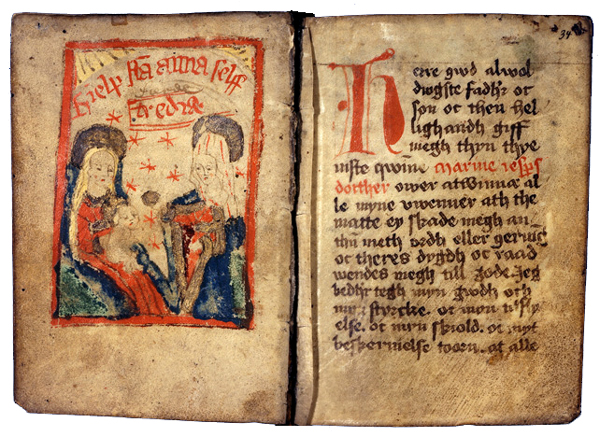 hielp sta anna self
tredie
34
Herre gwd alwol
dugste fadhr oc
søn oc then hel
lighandh giff
megh thin thye
niste qwinne marine iesps
dotther ower atwinnæ al
le myne vwenner ath the
matte ey skade megh an
thn meth ordh eller gerning
oc theres dygdh oc raad
wendes megh till gode. Jeg
bedhr tegh myn gwdh och
myn styrcke. oc myn
else. oc myn skiold. oc myt
beskermelse toorn. at alle